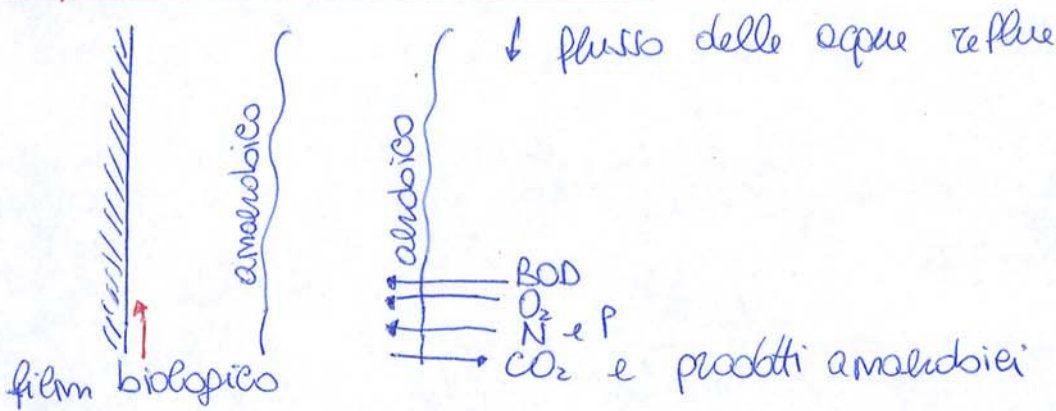 ↓ flusso delle acque reflue
anaerobico
aerobico
BOD
O₂
N e P
CO₂ e prodotti anaerobici
film biologico